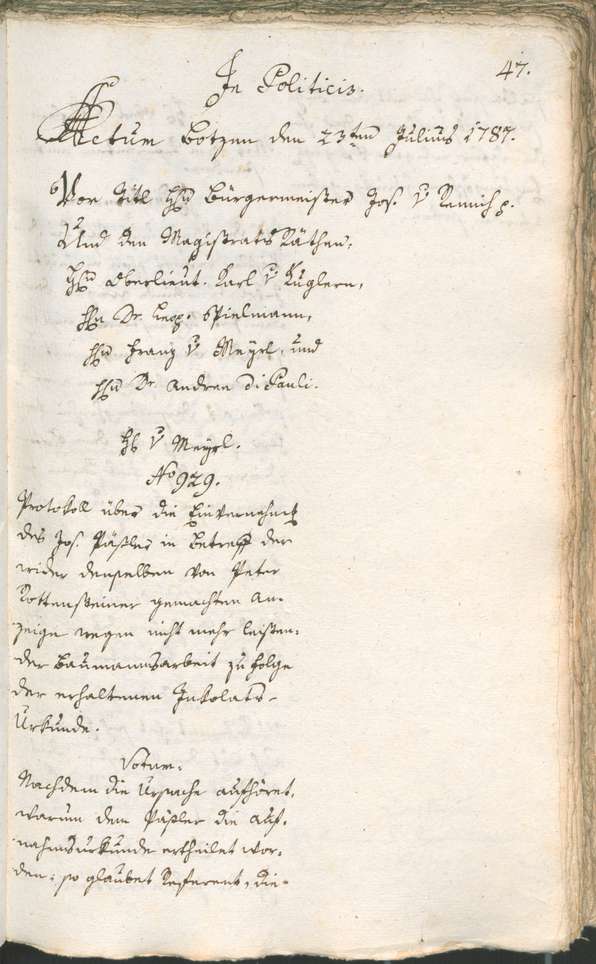 47.
In Politicis.
Actum Botzen den 23ten Julius 1787.
Vor Titl Hrn Bürgermeister Jos. v Remich p.
Und den Magistrats Räthen:
Hrn Oberlieut. Karl v Kuglern,
Hrn Dr. Leop. Spielmann,
Hrn Franz v Meyrl, und
Hrn Dr. Andreas Di Pauli.
Hr v Meyrl.
No 929.
Protokoll über die Einvernehmung
des Jos. Päßler in Betreff der
wider denselben von Peter
Rottensteiner gemachten An-
zeige wegen nicht mehr leisten-
der Baumannsarbeit zu folge
der erhaltenen Inkolats-
Urkunde.
Votum.
Nachdem die Ursache aufhöret,
warum dem Päßler die Auf-
nahmsurkunde ertheilet wor-
den: so glaubet Referent, die-